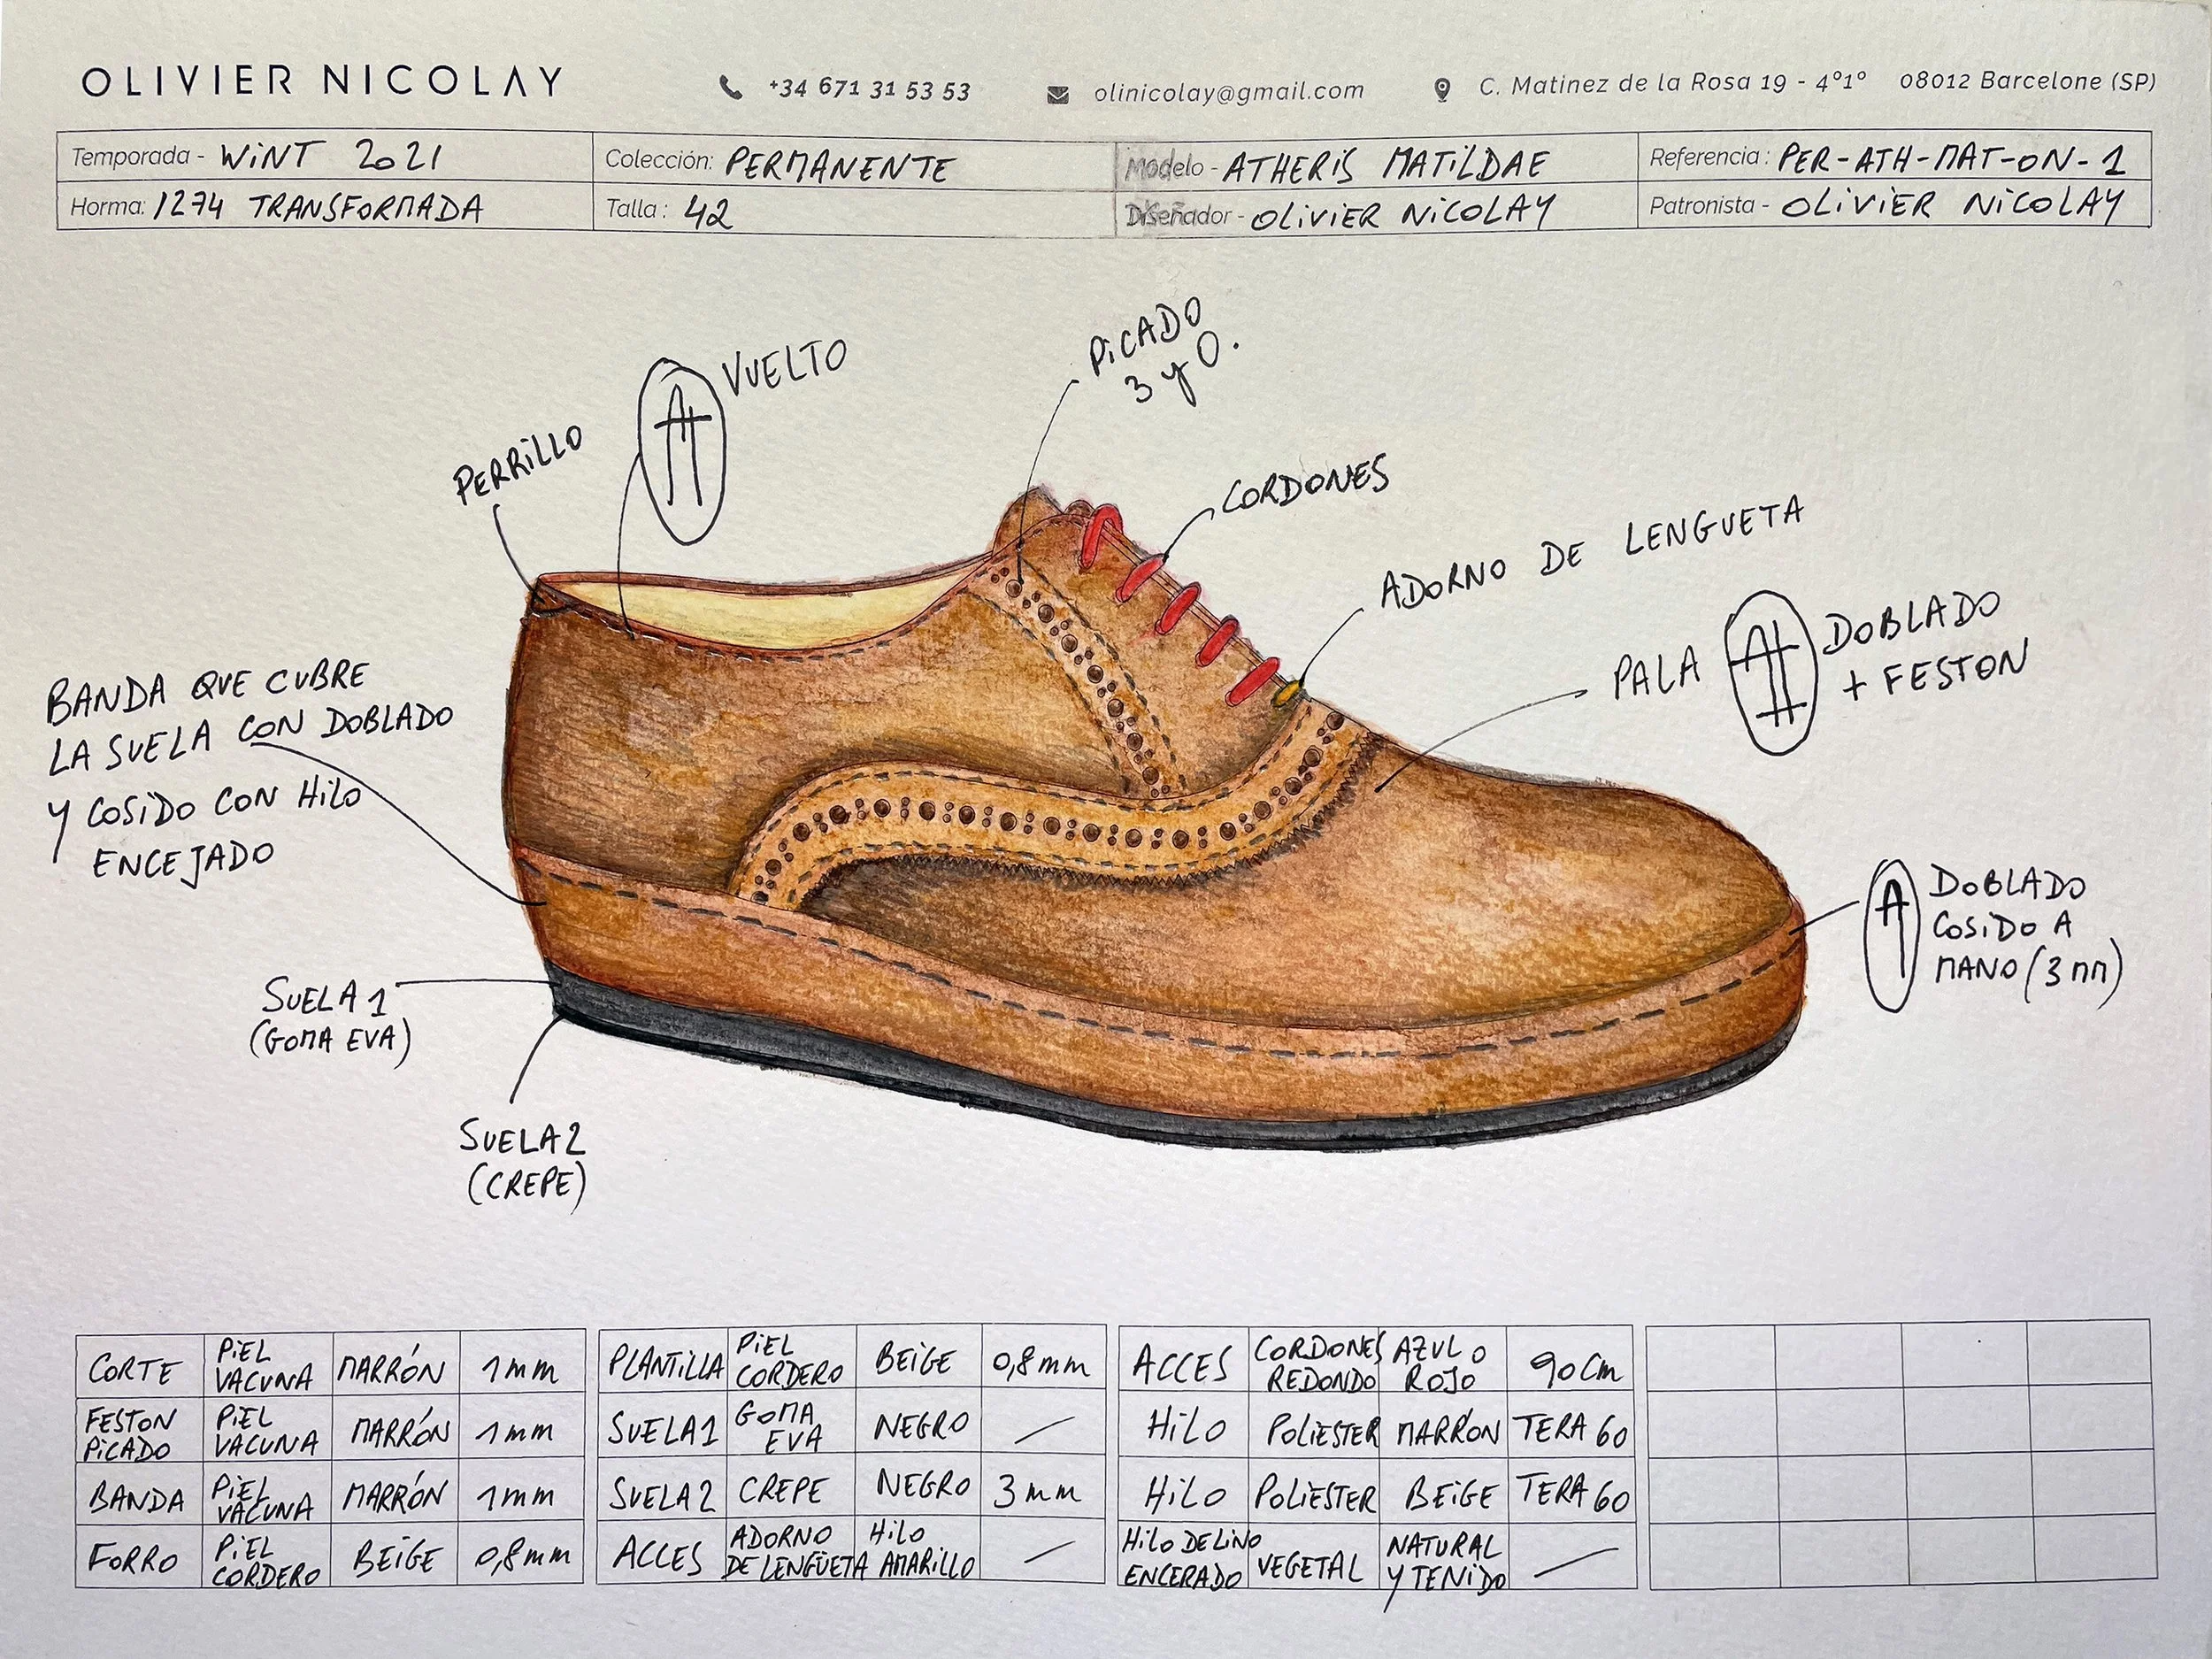 OLIVIER NICOLAY
+34 671 31 53 53
olinicolay@gmail.com
C. Matinez de la Rosa 19 - 4º1º 08012 Barcelone (SP)
Temporada - WiNT 2021
Colección: PERMANENTE
Modelo - ATHERiS MATiLDAE
Referencia: PER-ATH-MAT-ON-1
Horma: 1274 TRANSFORMADA
Talla: 42
Diseñador - OLiViER NiCOLAY
Patronista - OLiViER NiCOLAY
PiCADO
3 y O.
VUELTO
PERRiLLO
CORDONES
ADORNO DE LENGUETA
PALA
DOBLADO
+ FESTON
BANDA QUE CUBRE
LA SUELA CON DOBLADO
Y COSiDO CON HiLO
ENCEJADO
DOBLADO
COSiDO A
MANO (3 MM)
SUELA 1
(GOMA EVA)
SUELA 2
(CREPE)
CORTE PiEL VACUNA MARRÓN 1 mm
FESTON PiCADO PiEL VACUNA MARRÓN 1 mm
BANDA PiEL VACUNA MARRÓN 1 mm
FORRO PiEL CORDERO BEiGE 0,8 mm
PLANTiLLA PiEL CORDERO BEiGE 0,8 mm
SUELA 1 GOMA EVA NEGRO /
SUELA 2 CREPE NEGRO 3 mm
ACCES ADORNO DE LENGÜETA HiLO AMARiLLO /
ACCES CORDONES REDONDO AZUL O ROJO 90 Cm
HiLO POLiESTER MARRÓN TERA 60
HiLO POLiESTER BEiGE TERA 60
HiLO DE LiNO ENCERADO VEGETAL NATURAL Y TENiDO /